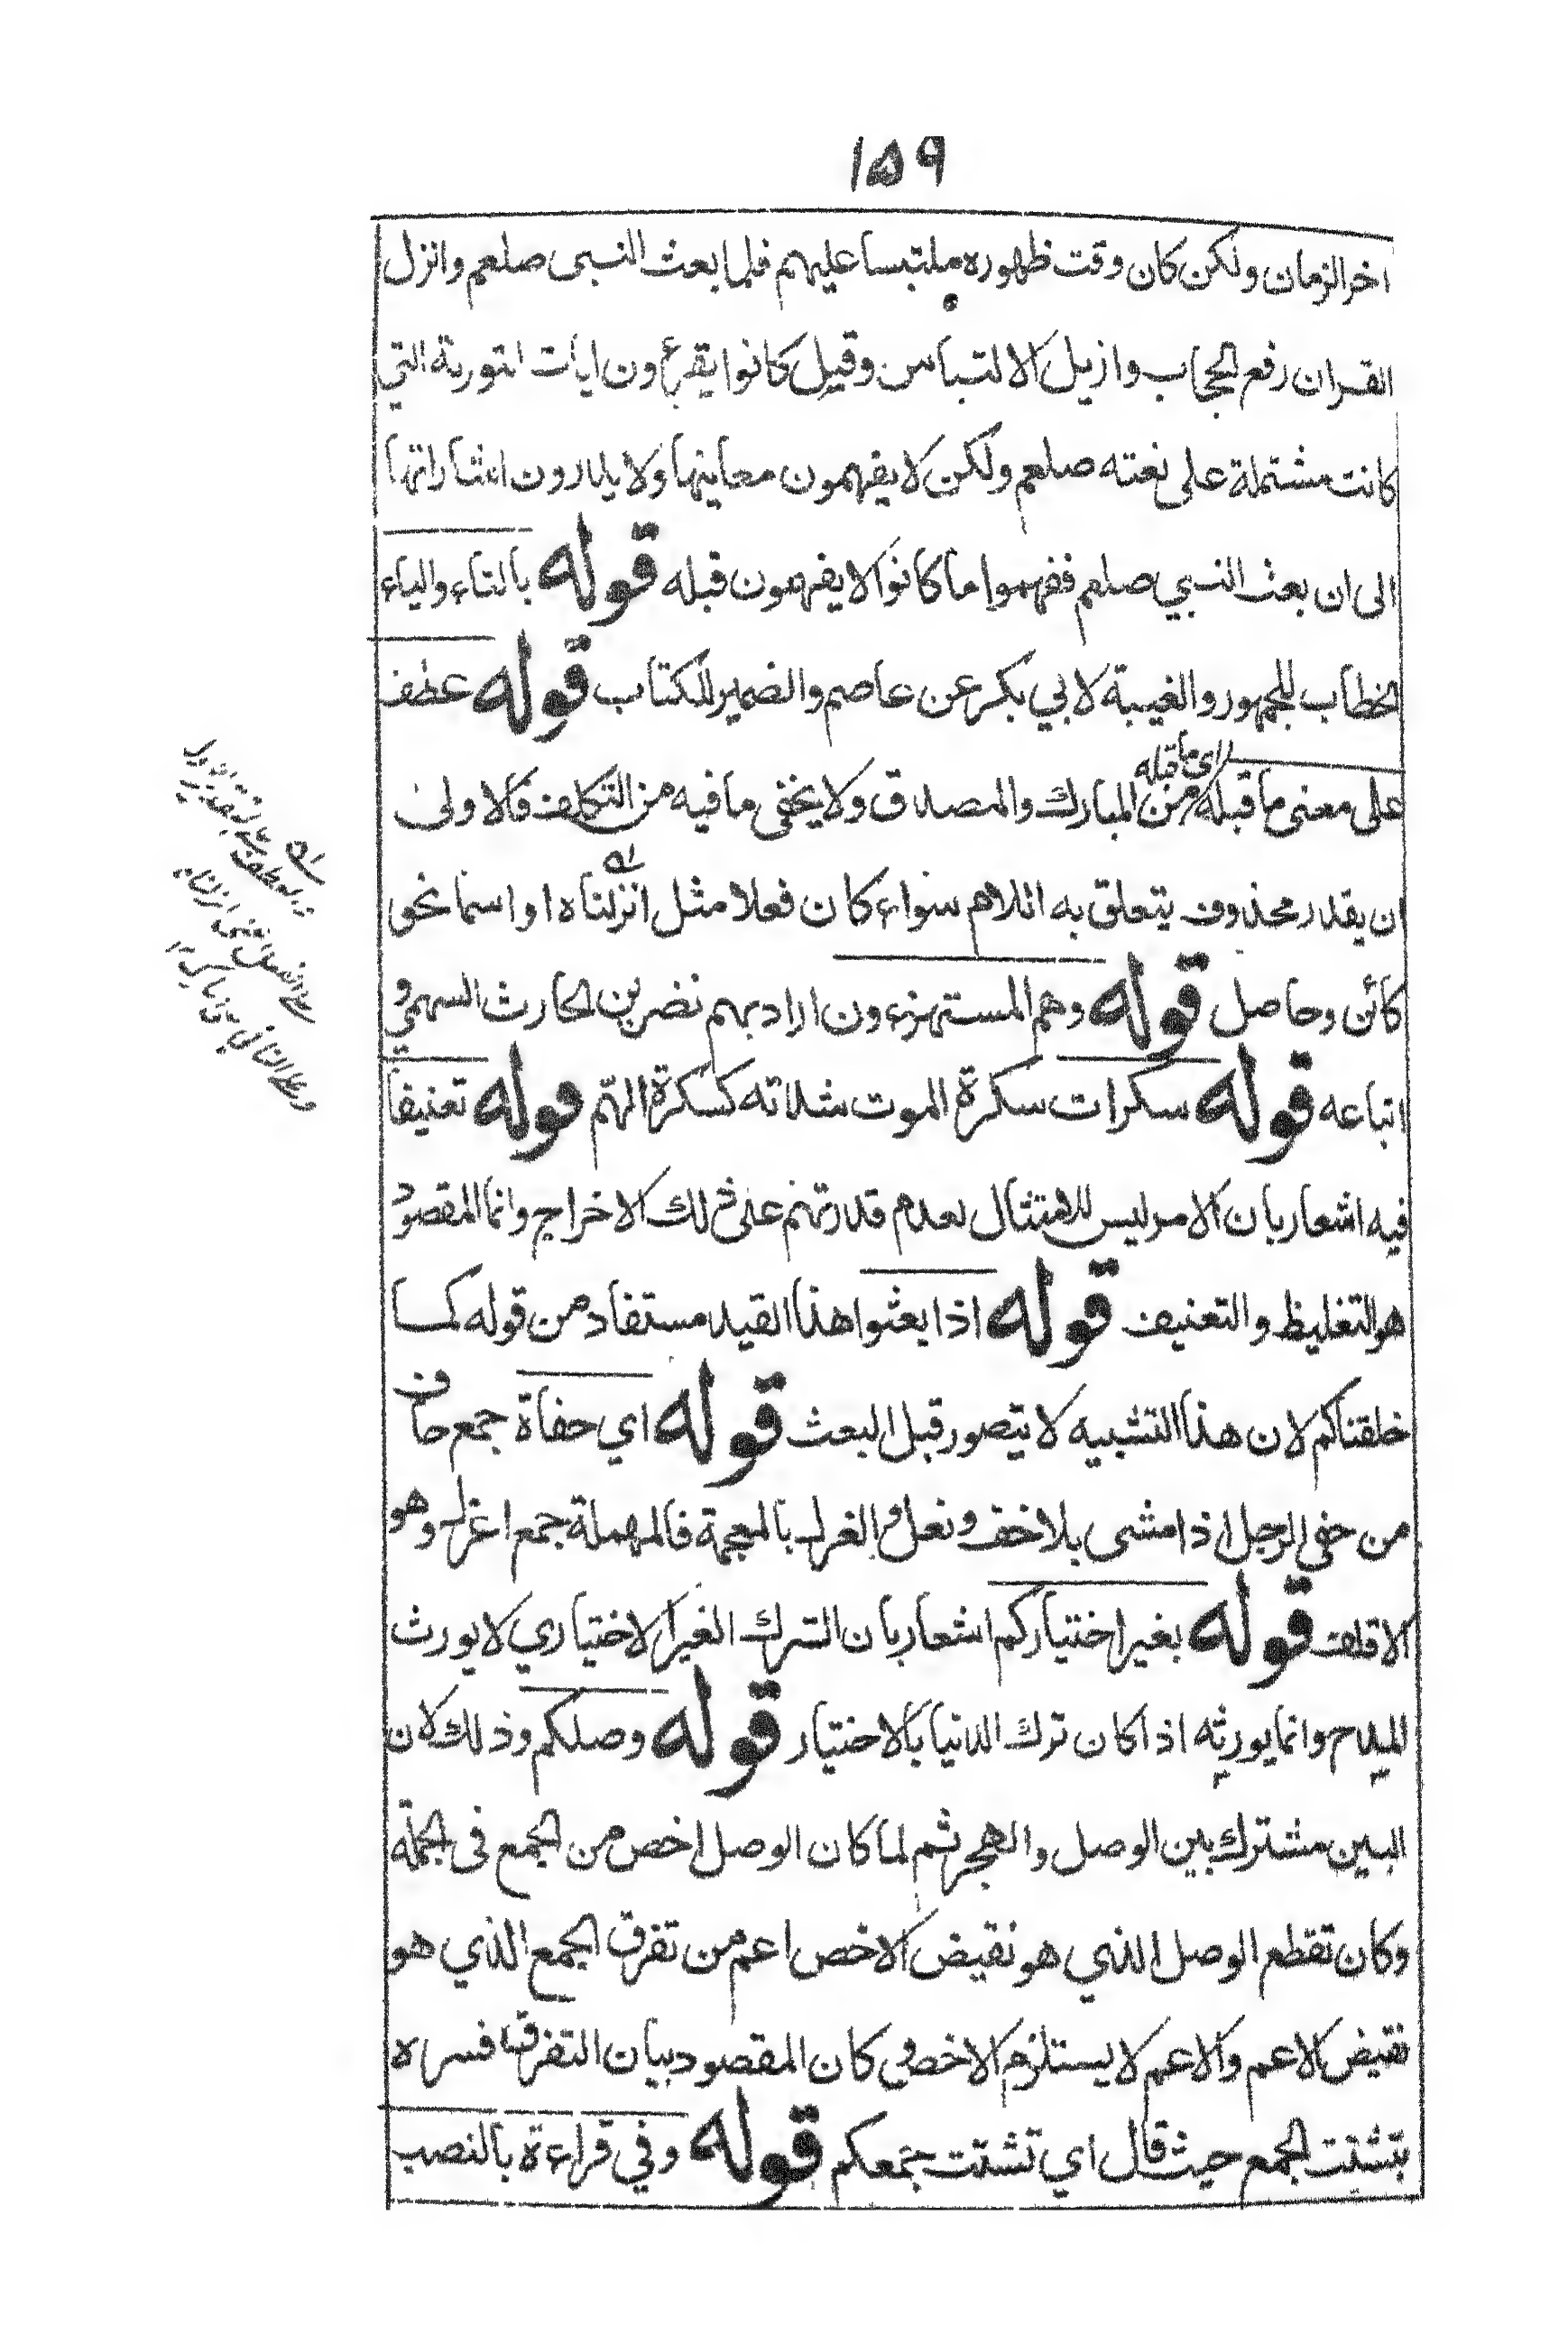 ١٥٩
اخر الزمان ولكن كان وقت ظهوره ملتبسا عليهم فلما بعث النبى صلعم وانزل
القران رفع الحجاب وازيل الالتباس وقيل كانوا يقرءون ايات التورية التي
كانت مشتملة على نعته صلعم ولكن لا يفهمون معاينها ولا يدرون اشاراتها
الى ان بعث النبي صلعم ففهموا ما كانوا لا يفهمون قبله قوله بالتاء والياء
الخطاب للجمهور والغيبة لابي بكر عن عاصم والضمير للكتاب قوله عطف
على معنى ما قبله اى ما قبله من المبارك والمصدق ولا يخفى ما فيه من التكلف فالاولى
ان يقدر محذوف يتعلق به اللام سواء كان فعلا مثل انزلناه او اسما نحو
كائن وحاصل قوله وهم المستهزءون اراد بهم نضر بن الحارث السهمي و
اتباعه قوله سكرات سكرة الموت شدته كسكرة الهم قوله تعنيفا
فيه اشعار بان الامر ليس للامتثال لعدم قدرتهم على ذلك الاخراج وانما المقصود
هو التغليظ والتعنيف قوله اذا بعثوا هذا القيد مستفاد من قوله كما
خلقناكم لان هذا التشبيه لا يتصور قبل البعث قوله اي حفاة جمع حاف
من حفى الرجل اذا مشى بلا خف ونعل والغرل بالمعجمة فالمهملة جمع اغرل وهو
الاقلف قوله بغير اختياركم اشعار بان الترك الغير الاختياري لا يورث
المدح وانما يورثه اذا كان ترك الدنيا بالاختيار قوله وصلكم وذلك لان
البين مشترك بين الوصل والهجر ثم لما كان الوصل اخص من الجمع فى الجملة
وكان تقطع الوصل الذي هو نقيض الاخص اعم من تفرق الجمع الذي هو
نقيض الاعم والاعم لا يستلزم الاخص وكان المقصود بيان التفرق فسره
بتشتت الجمع حيث قال اي تشتت جمعكم قوله وفي قراءة بالنصب